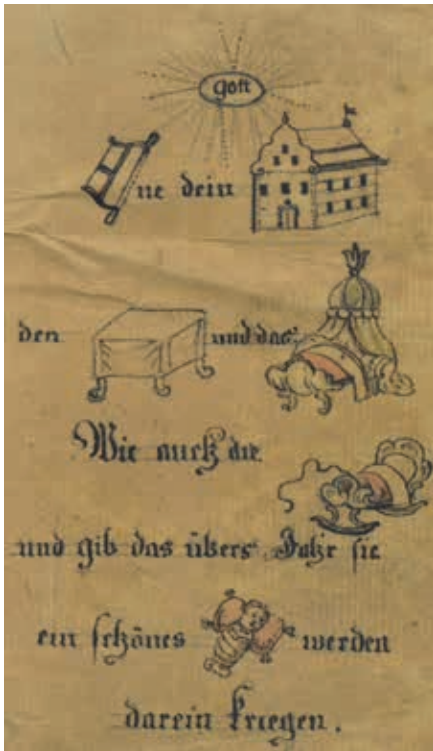 Gott
ne dein
den und das
Wie auch die
und gib das übers Jahr sie
ein schönes werden
darein kriegen.